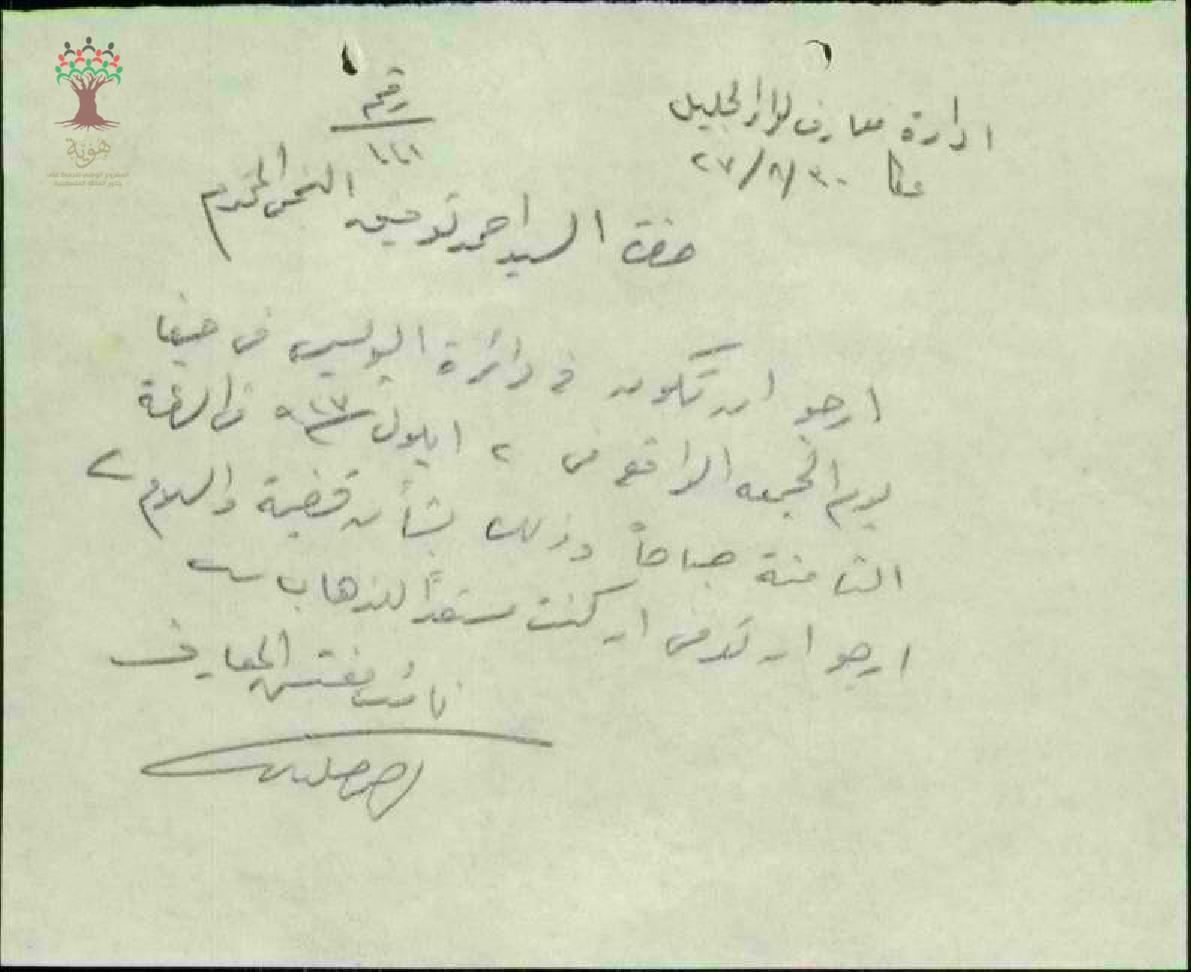 ادارة معارف لواء الجليل
عكا ٣٠/٨/٢٧
رقم
١٨٨١
حضرة السيد احمد توفيق النحوي المحترم
ارجو ان تكون في دائرة البوليس في حيفا
يوم الجمعه الواقع في ٢ ايلول في الساعة
الثامنة صباحاً وذلك بشأن قضية والسلام
ارجو ان كنت مستعداً للذهاب
نائب مفتش المعارف
هوية